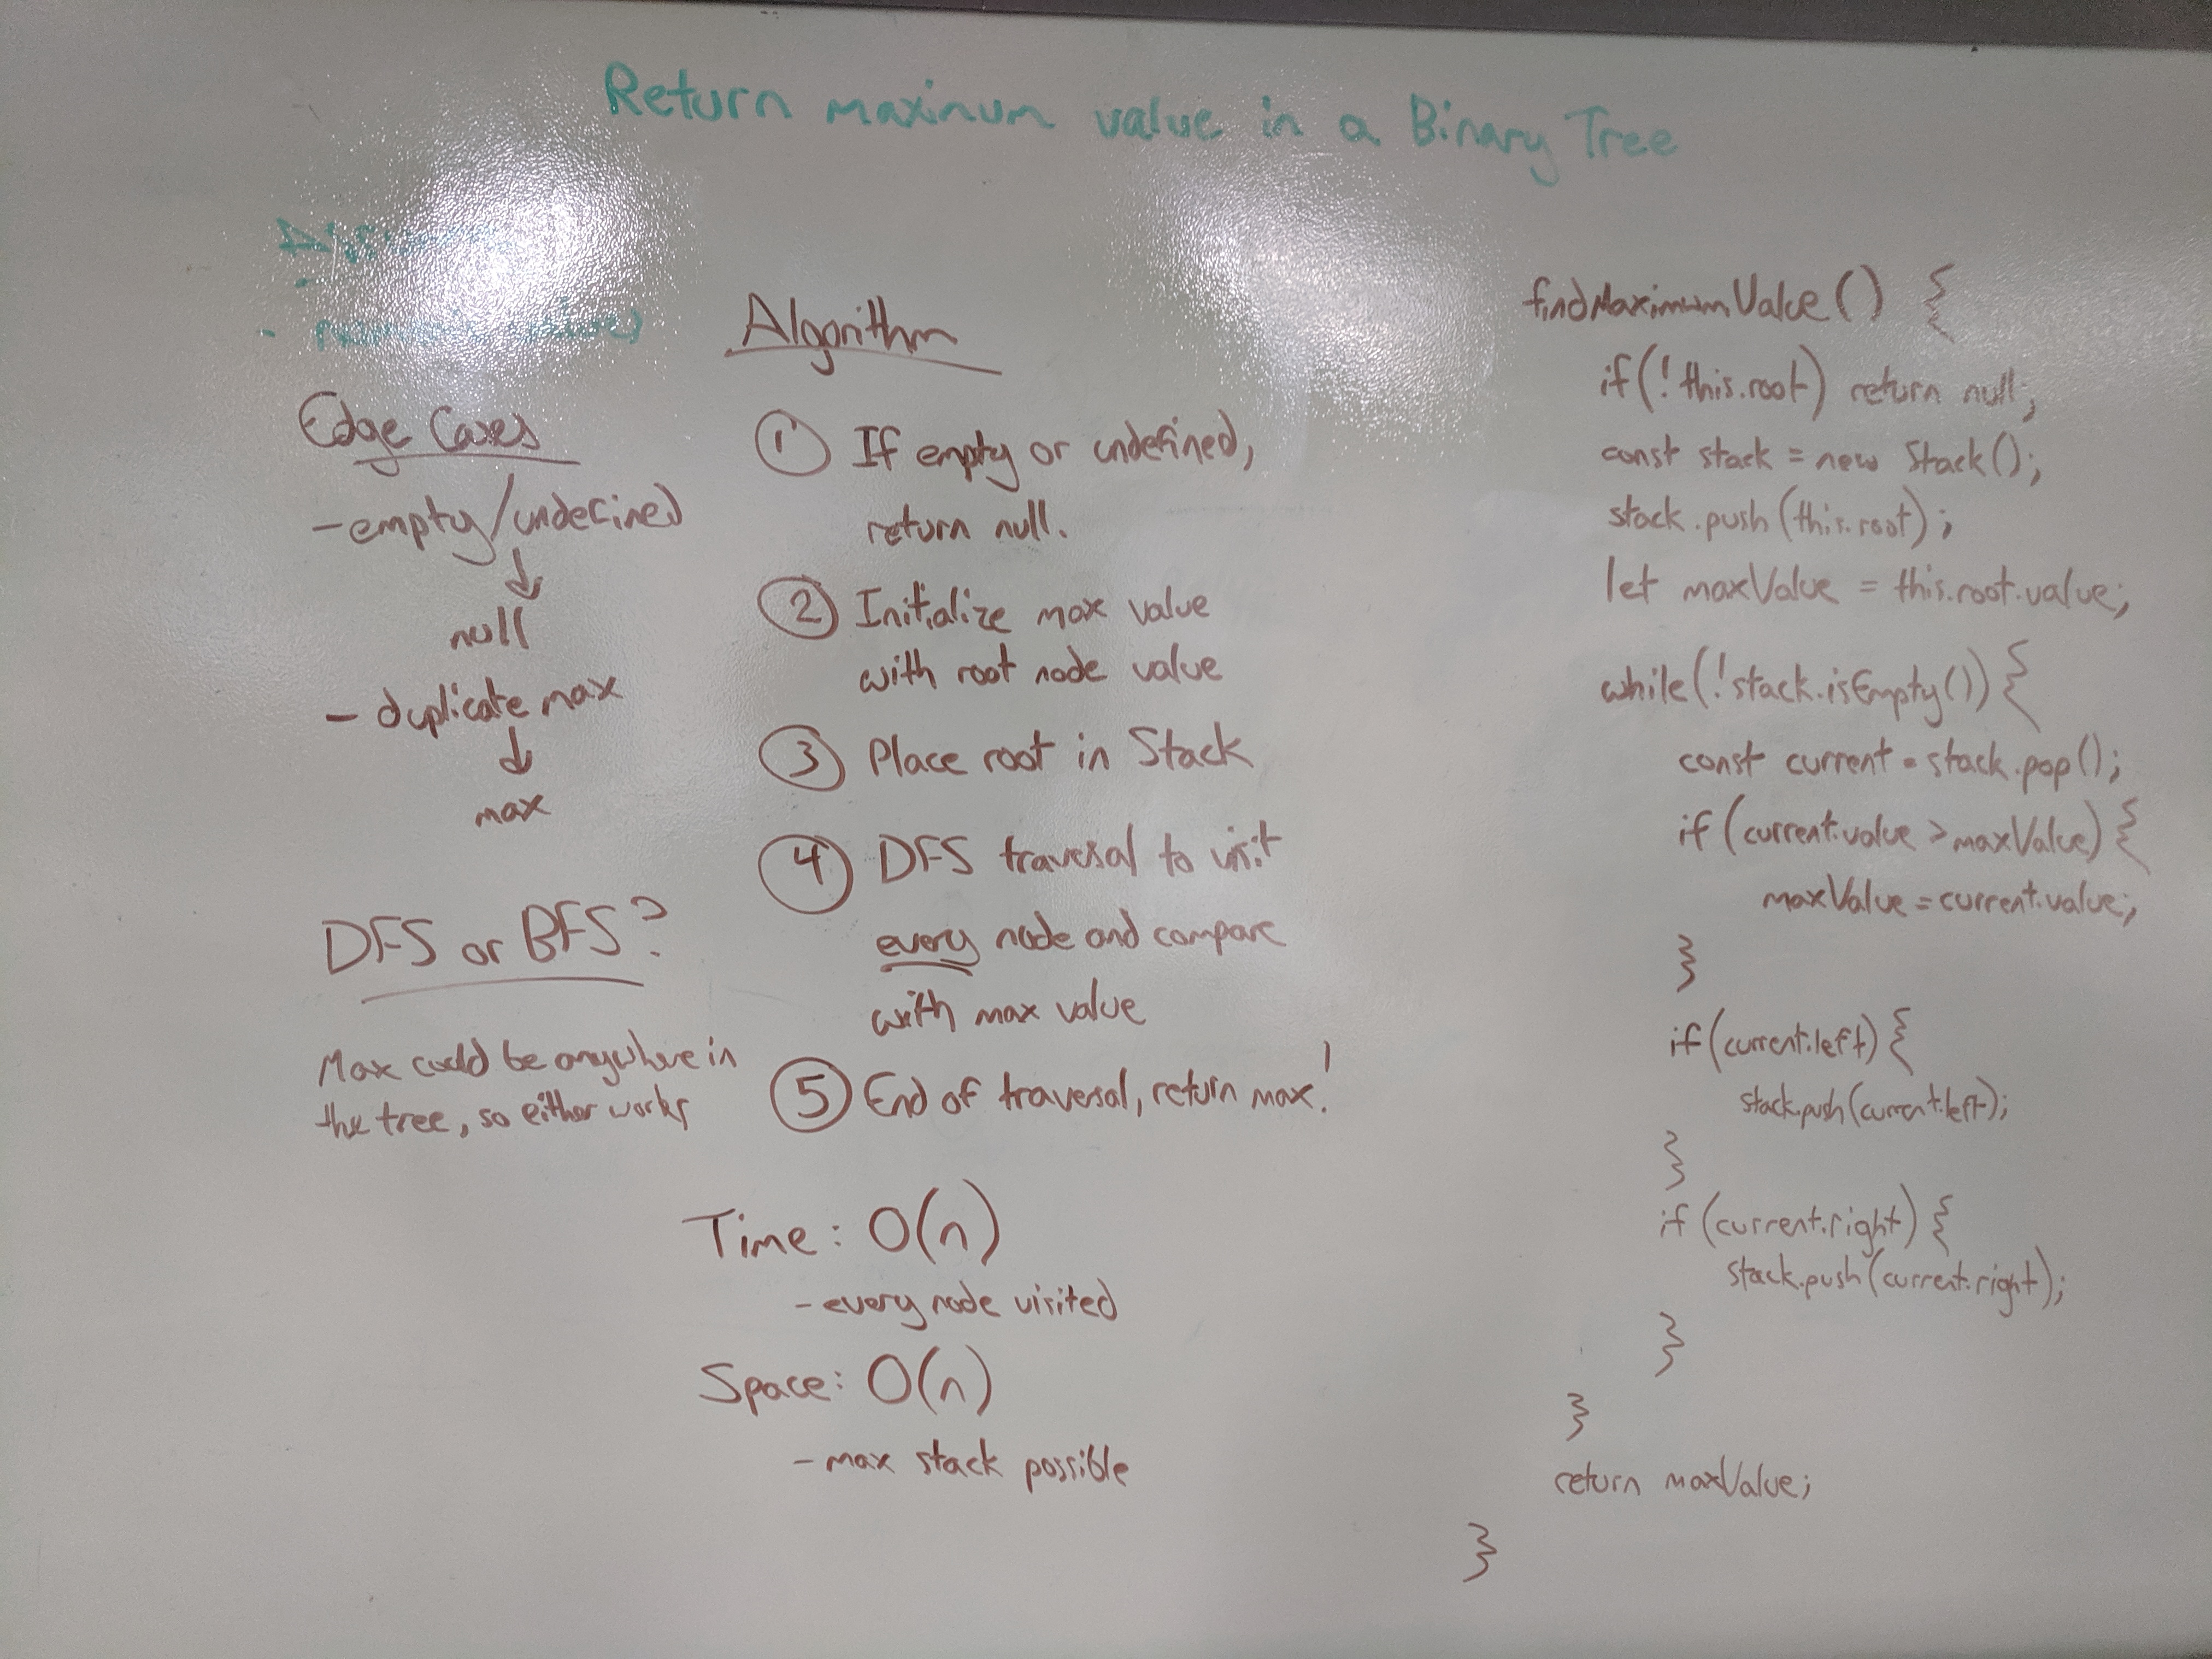 Return maxinum value in a Binary Tree
Edge Cases
- empty/undefined
↓
null
- duplicate max
↓
max
DFS or BFS?
Max could be anywhere in
the tree, so either works
Algorithm
① If empty or undefined,
return null.
② Initialize max value
with root node value
③ Place root in Stack
④ DFS traversal to visit
every node and compare
with max value
⑤ End of traversal, return max!
Time: O(n)
- every node visited
Space: O(n)
- max stack possible
findMaximumValue() {
if(!this.root) return null;
const stack = new Stack();
stack.push(this.root);
let maxValue = this.root.value;
while(!stack.isEmpty()) {
const current = stack.pop();
if (current.value > maxValue) {
maxValue = current.value;
}
if (current.left) {
stack.push(current.left);
}
if (current.right) {
stack.push(current.right);
}
}
return maxValue;
}